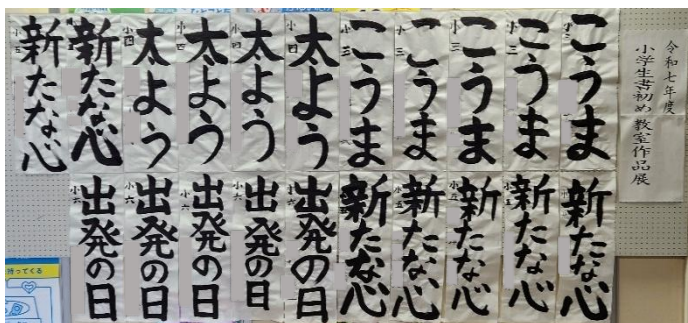 令和七年度
小学生書初め教室作品展
こうま
小三
こうま
小三
こうま
小三
こうま
小三
こうま
小三
太よう
小四
太よう
小四
太よう
小四
太よう
小四
新たな心
新たな心
小五
新たな心
新たな心
小五
新たな心
小五
新たな心
新たな心
出発の日
小六
出発の日
小六
出発の日
小六
出発の日
小六
出発の日
小六
持ってくる